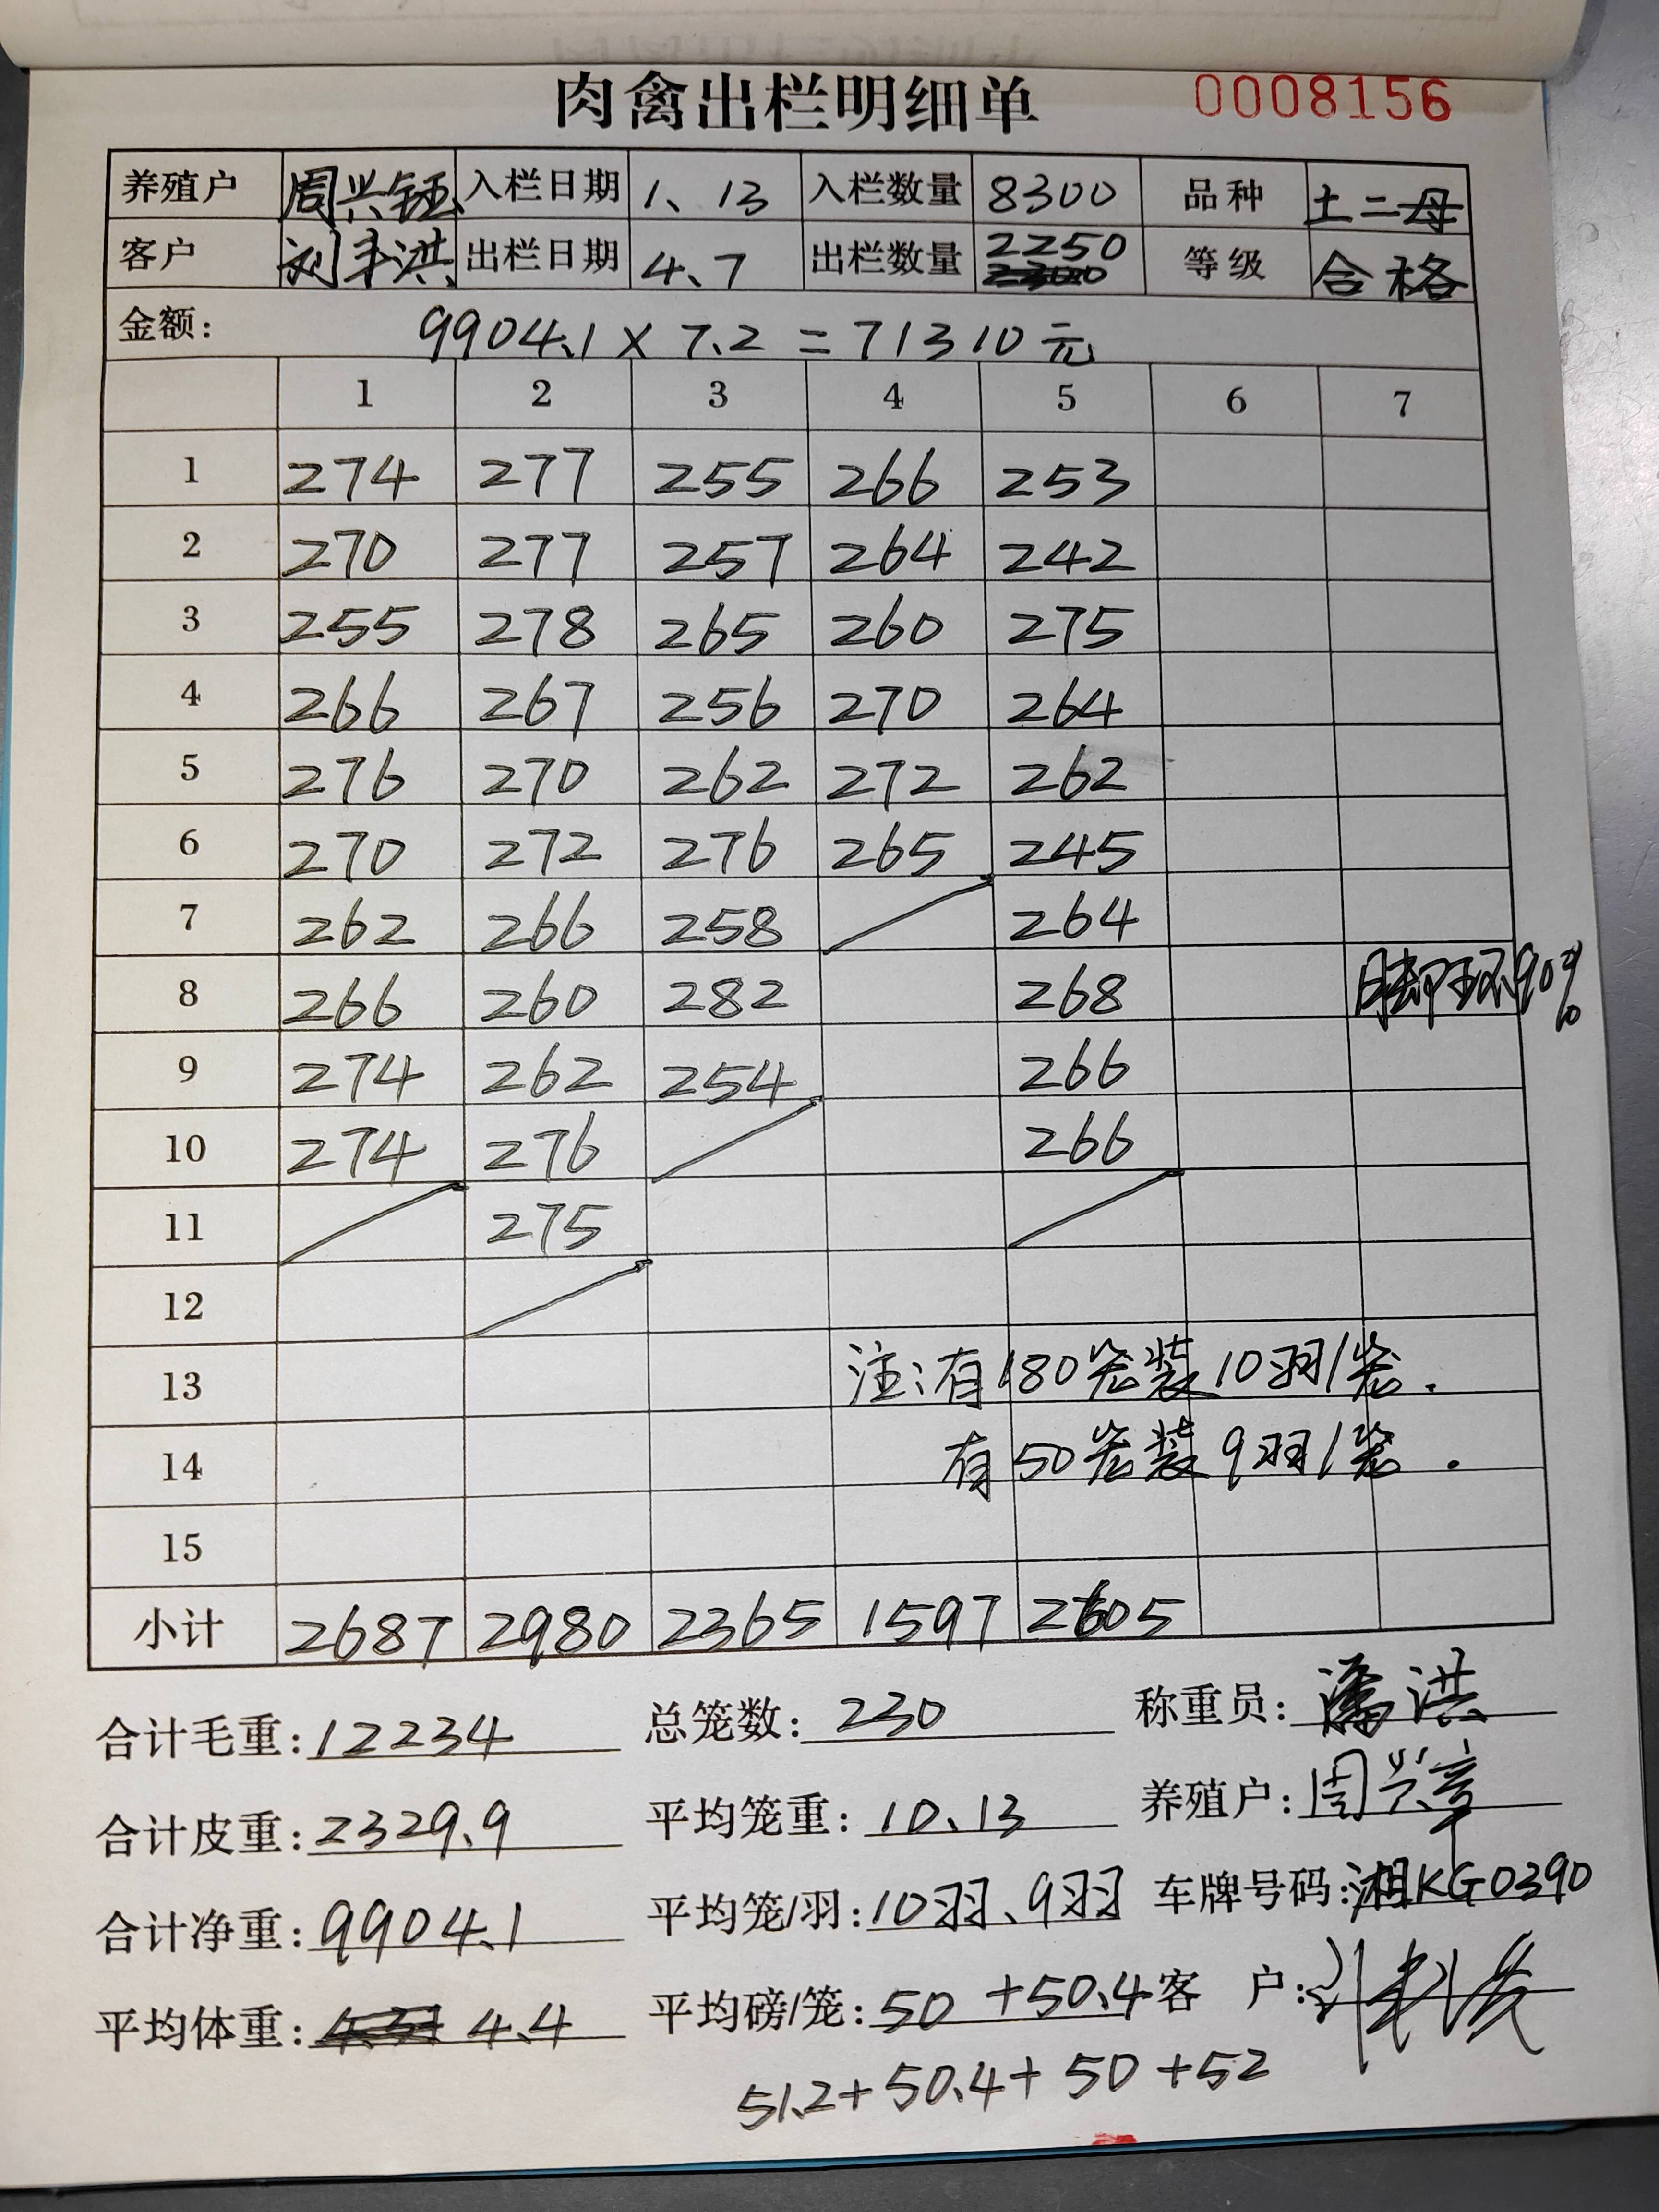 肉禽出栏明细单 0008156
养殖户 周兴钰 入栏日期 1、13 入栏数量 8300 品种 土二母
客户 刘丰洪 出栏日期 4、7 出栏数量 2250 等级 合格
金额: 9904.1 × 7.2 = 71310元
1 2 3 4 5 6 7
1 274 277 255 266 253
2 270 277 257 264 242
3 255 278 265 260 275
4 266 267 256 270 264
5 276 270 262 272 262
6 270 272 276 265 245
7 262 266 258 264
8 266 260 282 268 脚环90%
9 274 262 254 266
10 274 276 266
11 275
12
13 注:有180笼装10羽/笼.
14 有50笼装9羽/笼.
15
小计 2687 2980 2365 1597 2605
合计毛重:12234 总笼数:230 称重员:潘洪
合计皮重:2329.9 平均笼重:10.13 养殖户:周兴章
合计净重:9904.1 平均笼/羽:10羽、9羽 车牌号码:湘KG0390
平均体重:4.4 平均磅/笼:50+50.4 客户:
51.2+50.4+50+52